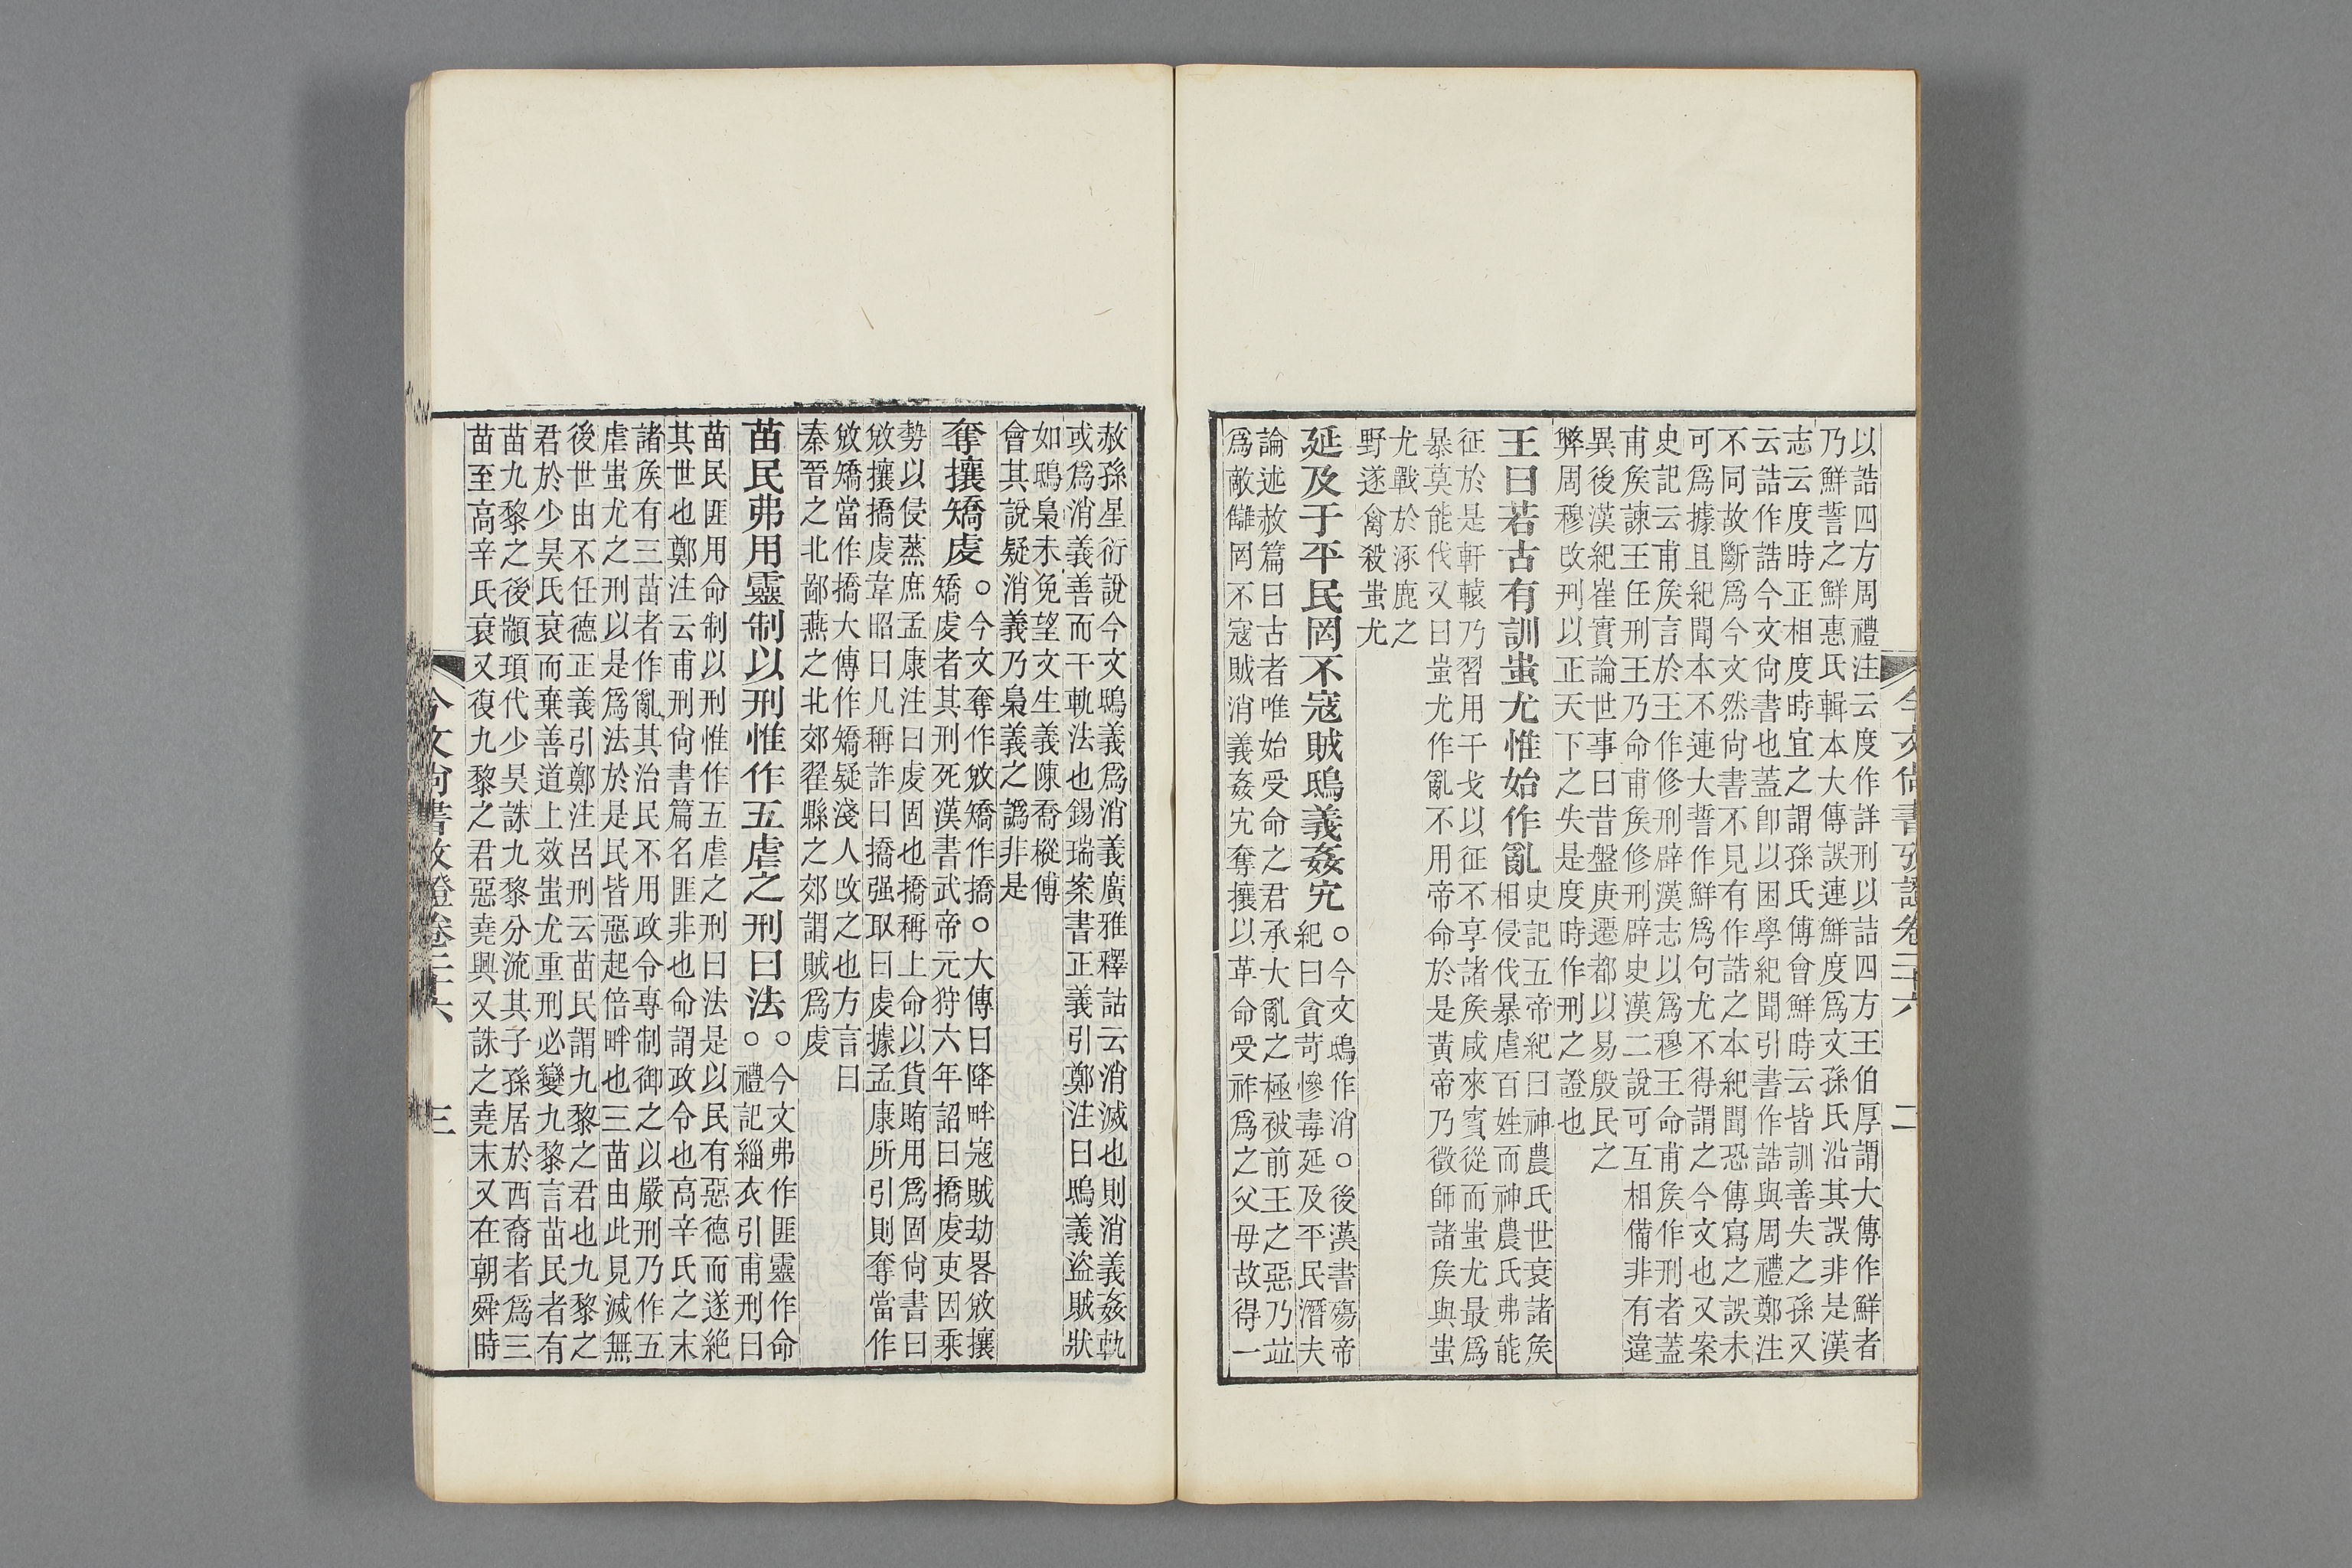 以誥四方周禮注云度作詳刑以詰四方王伯厚謂大傳作鮮者
乃鮮誓之鮮惠氏輯本大傳誤連鮮度爲文孫氏沿其誤非是漢
志云度時正相度時宜之謂孫氏傅會鮮時云皆訓善失之孫又
云誥作誥今文尙書也蓋卽以困學紀聞引書作誥與周禮鄭注
不同故斷爲今文然尙書不見有作誥之本紀聞恐傳寫之誤未
可爲據且紀聞本不連大誓作鮮爲句尤不得謂之今文也又案
史記云甫矦言於王作修刑辟漢志以爲穆王命甫矦作刑者蓋
甫矦諫王任刑王乃命甫矦修刑辟史漢二說可互相備非有違
異後漢紀崔實論世事曰昔盤庚遷都以易殷民之
弊周穆改刑以正天下之失是度時作刑之證也
王曰若古有訓蚩尤惟始作亂
史記五帝紀曰神農氏世衰諸矦
相侵伐暴虐百姓而神農氏弗能
征於是軒轅乃習用干戈以征不享諸矦咸來賓從而蚩尤最爲
暴莫能伐又曰蚩尤作亂不用帝命於是黃帝乃徵師諸矦與蚩
尤戰於涿鹿之
野遂禽殺蚩尤
延及于平民罔不寇賊鴟義姦宄
○今文鴟作消○後漢書殤帝
紀曰貪苛慘毒延及平民潛夫
論述赦篇曰古者唯始受命之君承大亂之極被前王之惡乃竝
爲敵讎罔不寇賊消義姦宄奪攘以革命受祚爲之父母故得一
今文尙書攷證卷二十六
二
赦孫星衍說今文鴟義爲消義廣雅釋詁云消滅也則消義姦軌
或爲消義善而干軌法也錫瑞案書正義引鄭注曰鴟義盜賊狀
如鴟梟未免望文生義陳喬樅傅
會其說疑消義乃梟義之譌非是
奪攘矯虔
○今文奪作敓矯作撟○大傳曰降畔寇賊劫畧敓攘
矯虔者其刑死漢書武帝元狩六年詔曰撟虔吏因乘
勢以侵蒸庶孟康注曰虔固也撟稱上命以貨賄用爲固尙書曰
敓攘撟虔韋昭曰凡稱詐曰撟强取曰虔據孟康所引則奪當作
敓矯當作撟大傳作矯疑淺人改之也方言曰
秦晉之北鄙燕之北郊翟縣之郊謂賊爲虔
苗民弗用靈制以刑惟作五虐之刑曰法
○今文弗作匪靈作命
○禮記緇衣引甫刑曰
苗民匪用命制以刑惟作五虐之刑曰法是以民有惡德而遂絶
其世也鄭注云甫刑尙書篇名匪非也命謂政令也高辛氏之末
諸矦有三苗者作亂其治民不用政令專制御之以嚴刑乃作五
虐蚩尤之刑以是爲法於是民皆惡起倍畔也三苗由此見滅無
後世由不任德正義引鄭注呂刑云苗民謂九黎之君也九黎之
君於少昊氏衰而棄善道上效蚩尤重刑必變九黎言苗民者有
苗九黎之後顓頊代少昊誅九黎分流其子孫居於西裔者爲三
苗至高辛氏衰又復九黎之君惡堯興又誅之堯末又在朝舜時
今文尙書攷證卷二十六
三